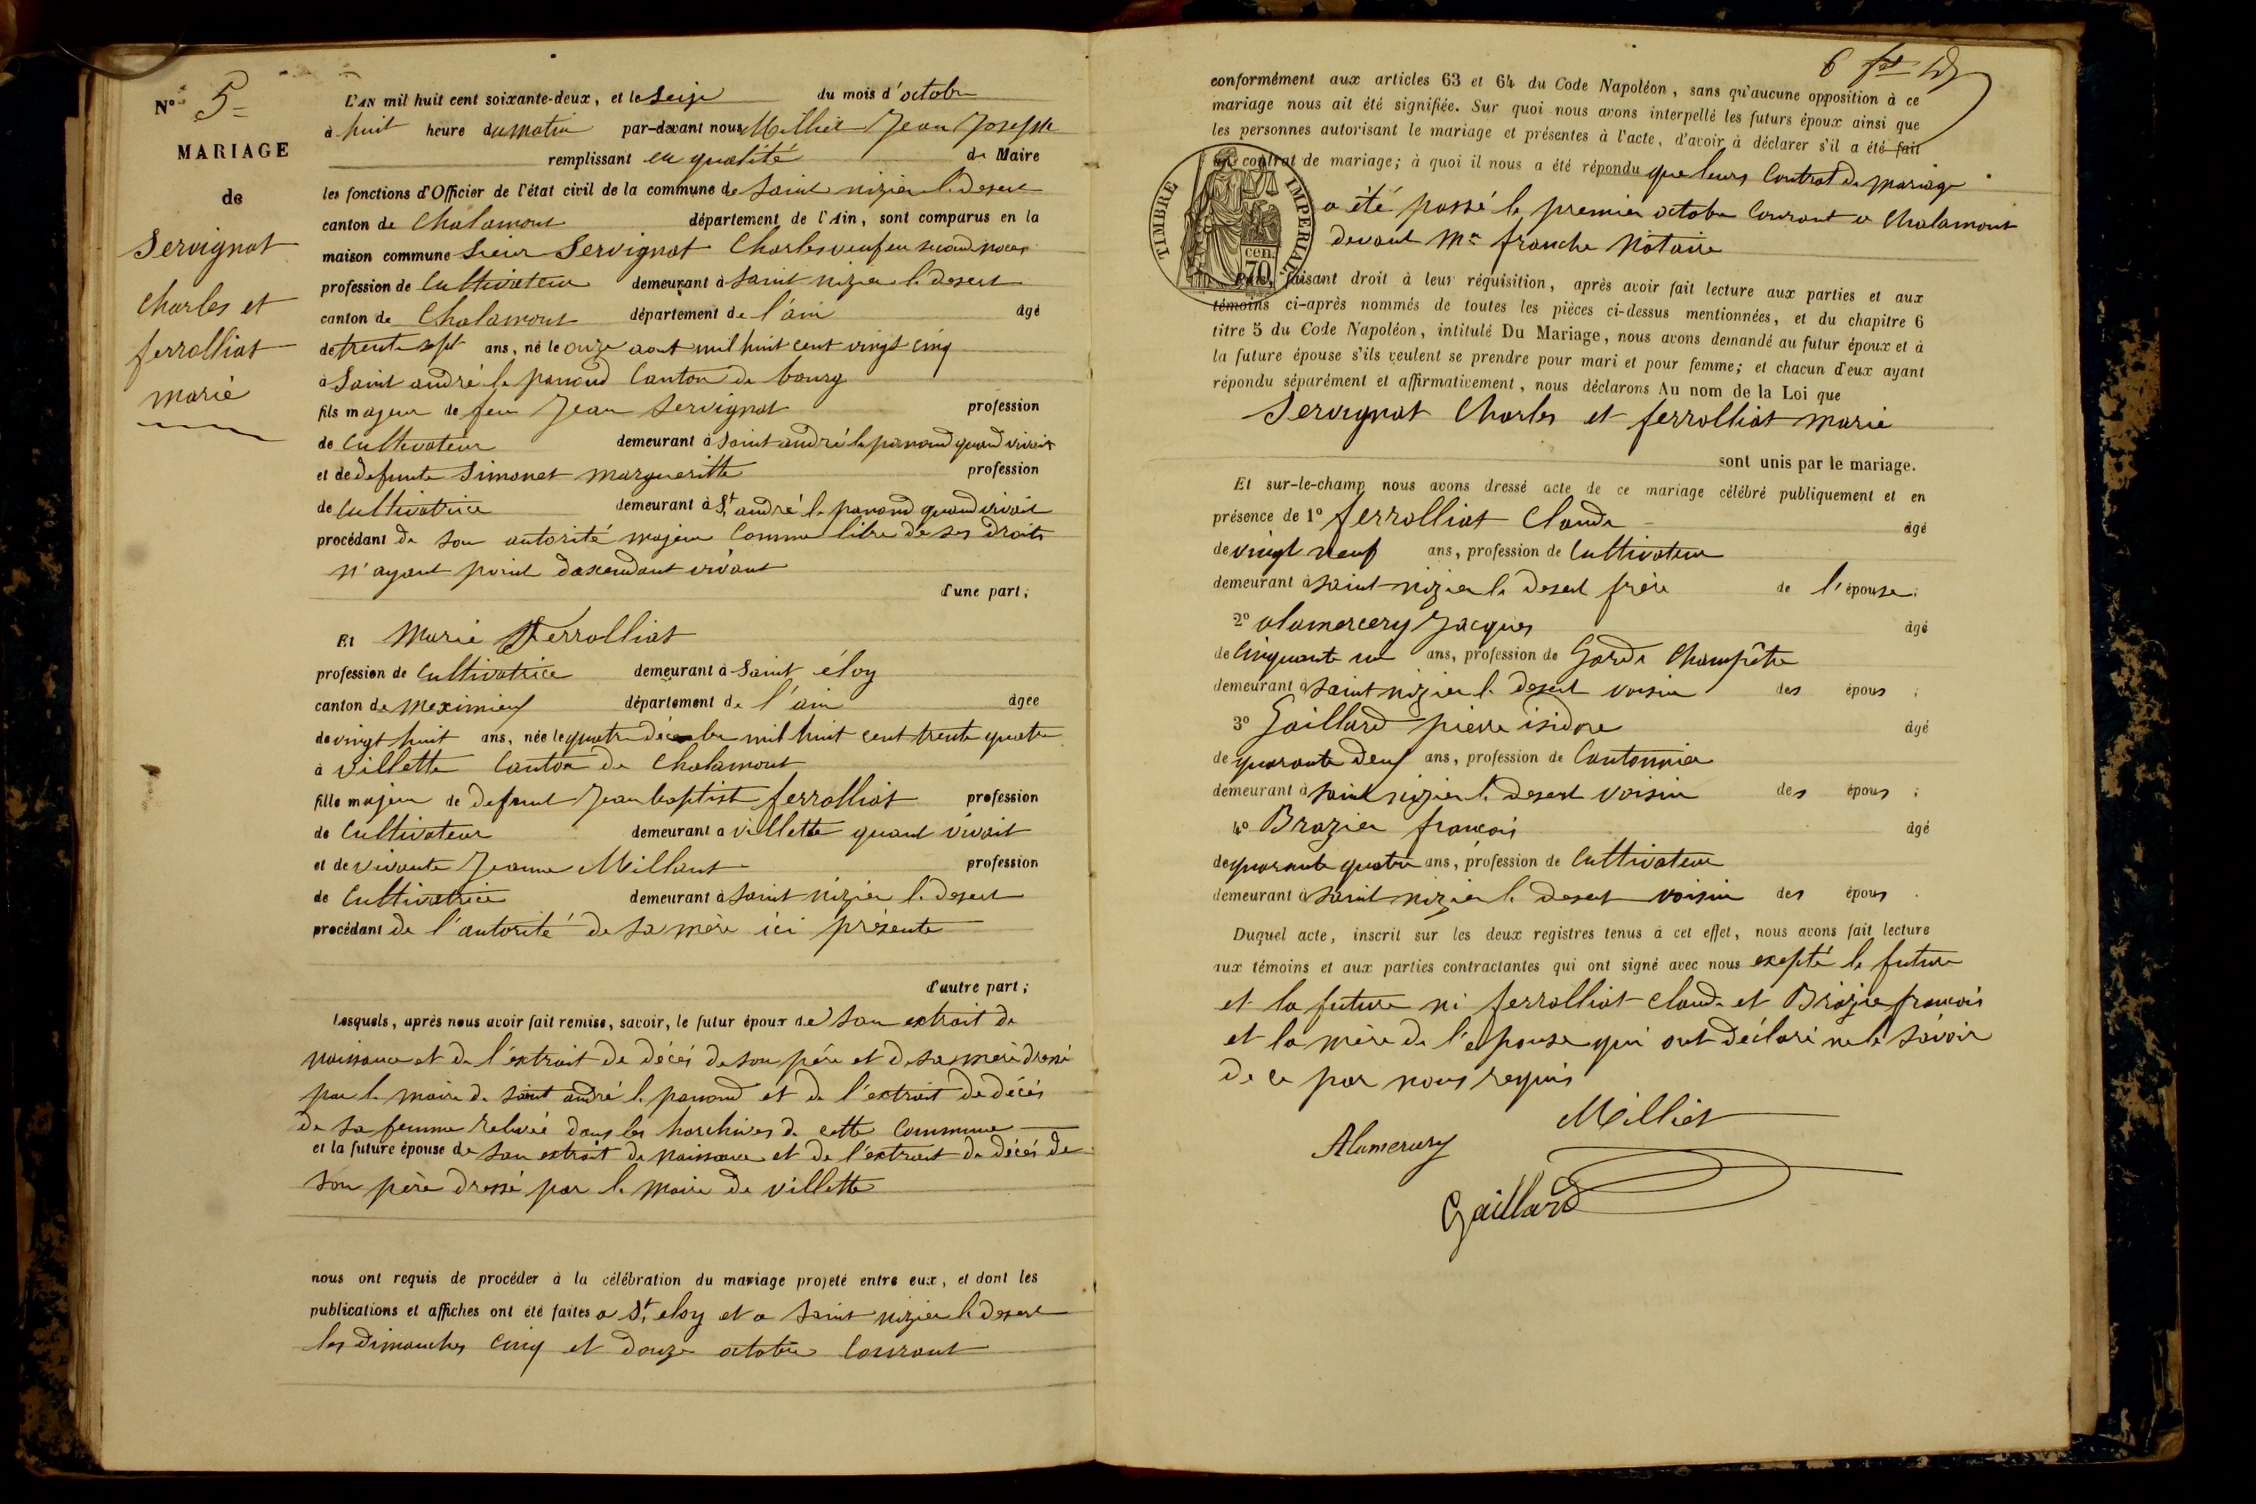 N° 5
MARIAGE
de
Servignat
Charles et
ferrolliat
marie
L'AN mil huit cent soixante-deux, et le seize du mois d'octobre
à huit heure du matin par-devant nous Milliet Jean Joseph
remplissant en qualité de Maire
les fonctions d'Officier de l'état civil de la commune de saint nizier le desert
canton de Chalamont département de l'Ain, sont comparus en la
maison commune sieur Servignat Charles veuf en second noces
profession de Cultivateur demeurant à saint nizier le desert
canton de Chalamont département de l'ain âgé
de trente sept ans, né le onze aout mil huit cent vingt cinq
à saint andré le panoud Canton de bourg
fils majeur de feu Jean Servignat profession
de Cultivateur demeurant à saint andré le panoud quand vivait
et de defunte Simonet margueritte profession
de Cultivatrice demeurant à St andré le panoud quand vivait
procédant de son autorité majeur Comme libre de ses droits
n'ayant point dascendant vivant
d'une part;
Et Marie Ferrolliat
profession de Cultivatrice demeurant à Saint éloy
canton de meximieux département de l'ain âgée
de vingt huit ans, née le quatre décembre mil huit cent trente quatre
à Villette Canton de Chalamont
fille majeur de defunt Jean baptist ferrolliat profession
de Cultivateur demeurant à villette quand vivait
et de vivante Jeanne Millant profession
de Cultivatrice demeurant à saint nizier le desert
procédant de l'autorité de sa mère ici présente
d'autre part;
Lesquels, après nous avoir fait remise, savoir, le futur époux de son extrait de
naissance et de l'extrait de décés de son pére et de sa mere dressé
par le maire de saint andré le panoud et de l'extrait de décés
de sa femme relevée dans les harchives de cette Commune
et la future épouse de son extrait de naissance et de l'extrait de décés de
son père dressé par le maire de villette
nous ont requis de procéder à la célébration du mariage projeté entre eux, et dont les
publications et affiches ont été faites a St eloy et a saint nizier le desert
les dimanches cinq et douze octobre Courant
6
conformément aux articles 63 et 64 du Code Napoléon, sans qu'aucune opposition à ce
mariage nous ait été signifiée. Sur quoi nous avons interpellé les futurs époux ainsi que
les personnes autorisant le mariage et présentes à l'acte, d'avoir à déclarer s'il a été fait
un contrat de mariage; à quoi il nous a été répondu que leurs Contrat de mariage
a été passé le premier octobre Courant a Chalamont
devant Me franche Notaire
TIMBRE IMPERIAL
cen.
70
faisant droit à leur réquisition, après avoir fait lecture aux parties et aux
témoins ci-après nommés de toutes les pièces ci-dessus mentionnées, et du chapitre 6
titre 5 du Code Napoléon, intitulé Du Mariage, nous avons demandé au futur époux et à
la future épouse s'ils veulent se prendre pour mari et pour femme; et chacun d'eux ayant
répondu séparément et affirmativement, nous déclarons Au nom de la Loi que
Servignat Charles et ferrolliat marie
sont unis par le mariage.
Et sur-le-champ nous avons dressé acte de ce mariage célébré publiquement et en
présence de 1° ferrolliat Claude âgé
de vingt neuf ans, profession de Cultivateur
demeurant à saint nizier le desert frère de l'épouse;
2° alamercery Jacques âgé
de Cinquante un ans, profession de Garde Champêtre
demeurant à saint nizier le desert voisin des épous;
3° Gaillard pierre isidore âgé
de quarante deux ans, profession de Cantonnier
demeurant à saint nizier le desert voisin des épous;
4° Brazier francois âgé
de quarante quatre ans, profession de Cultivateur
demeurant à saint nizier le desert voisin des épous.
Duquel acte, inscrit sur les deux registres tenus à cet effet, nous avons fait lecture
aux témoins et aux parties contractantes qui ont signé avec nous exepté le future
et la future ni ferrolliat claude et Brazier francois
et la mère de l'epouse qui ont déclaré ne le savoir
de ce par nous requis
Milliet
Alamercery
Gaillard